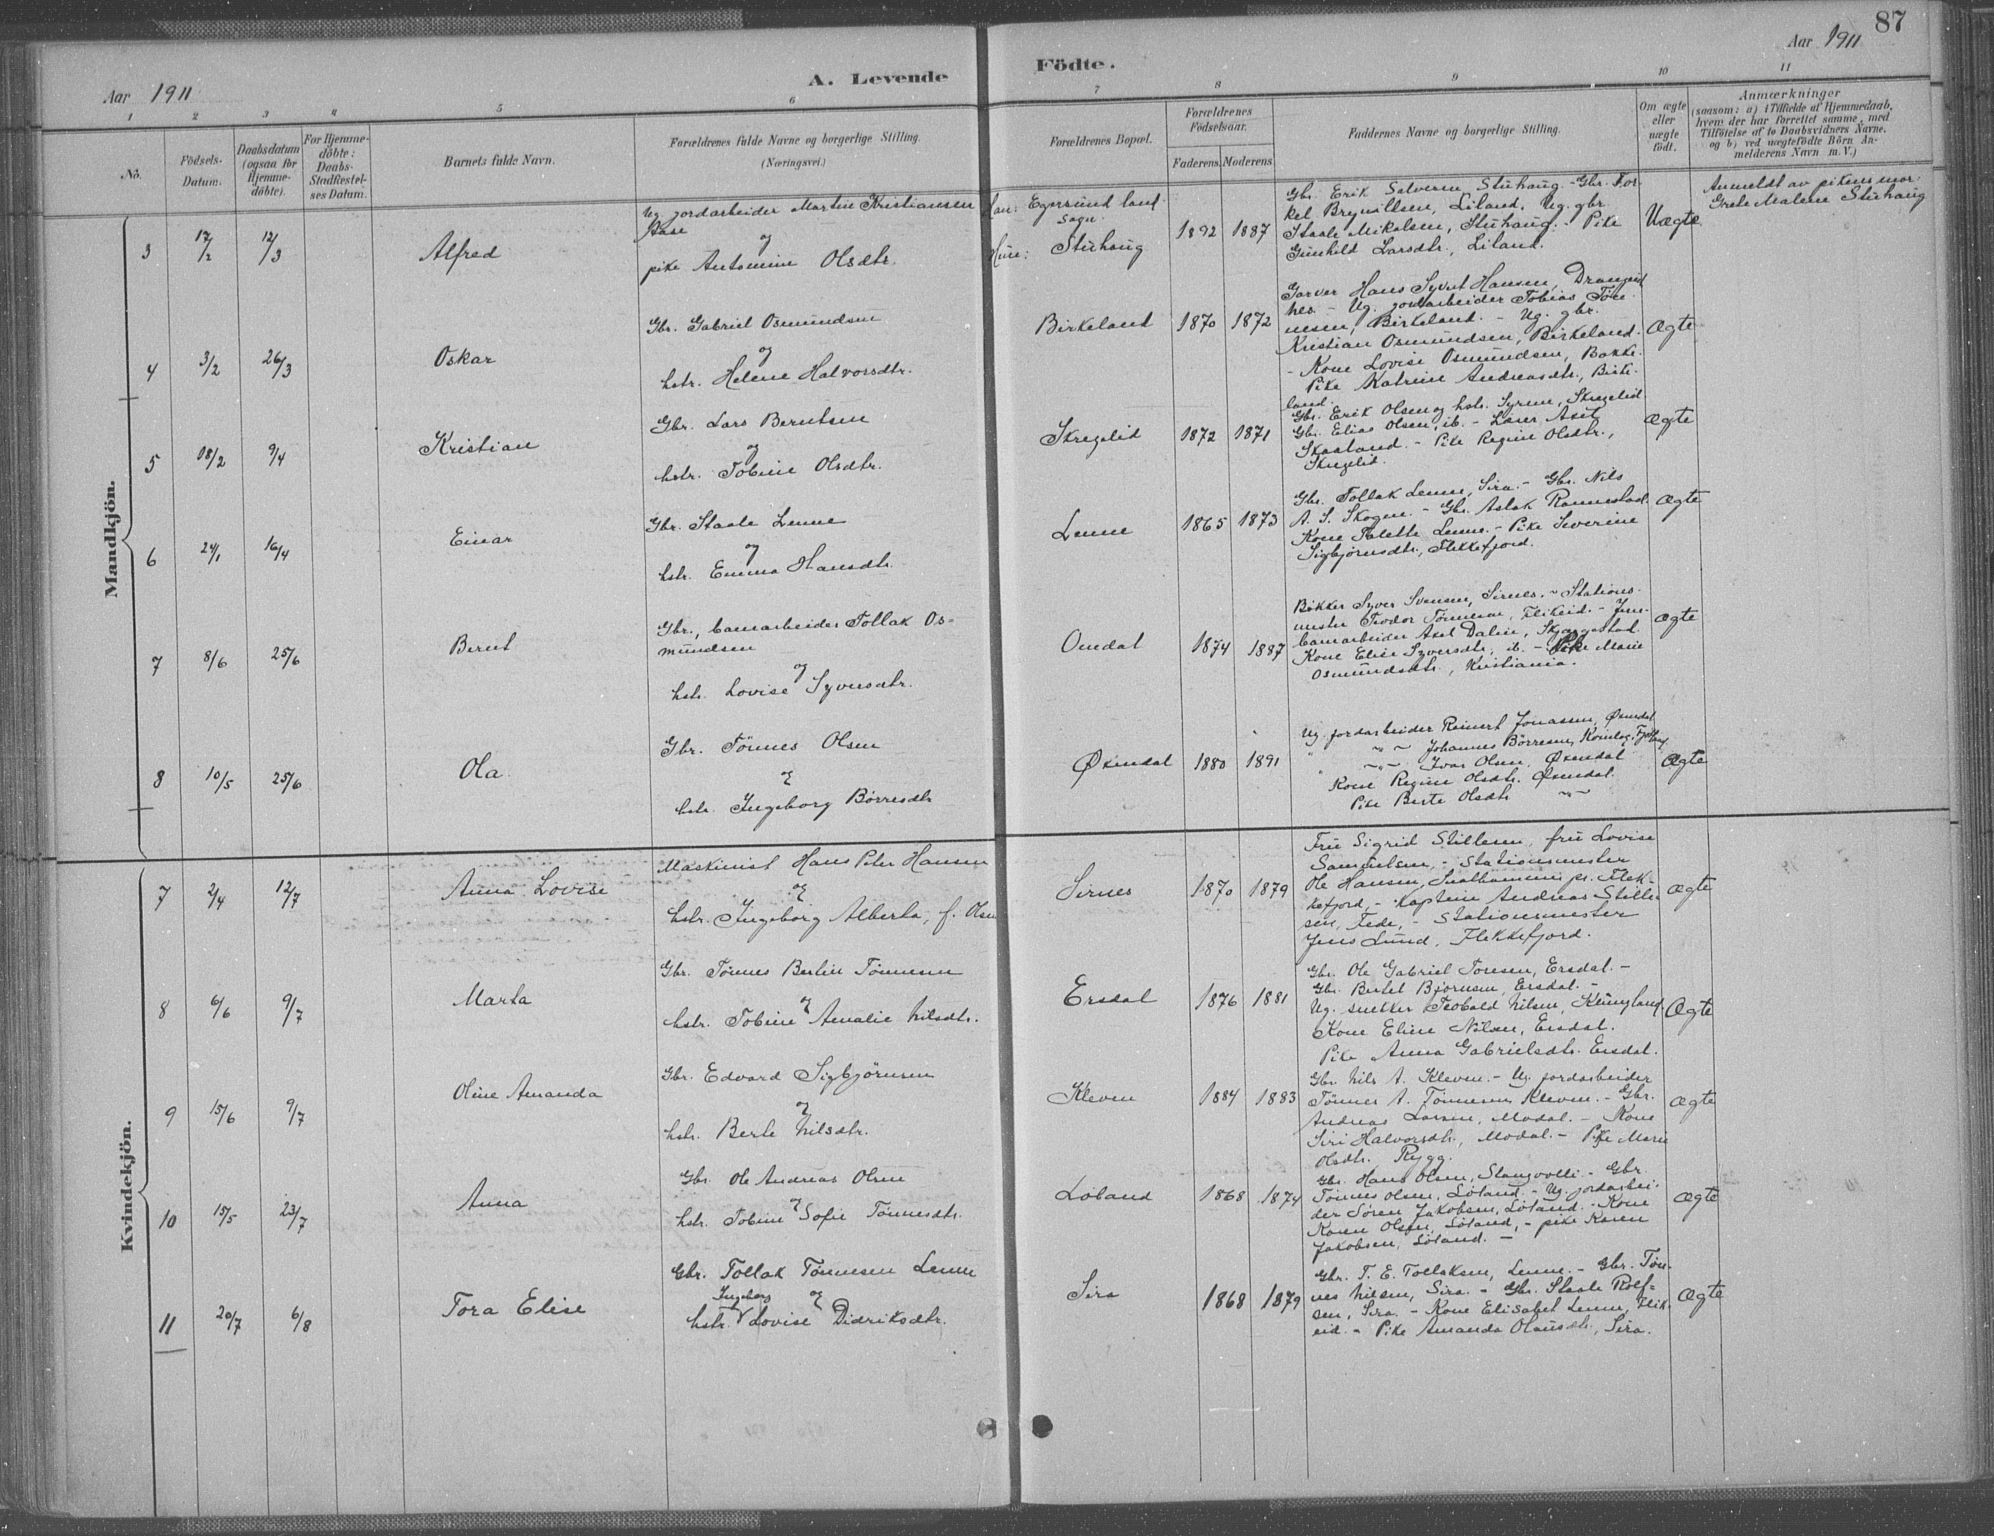 87
Aar 1911
A. Levende Födte.
Aar 1911
1 2 3 4 5 6 7 8 9 10 11
No.
Födsels-Datum.
Daabsdatum (ogsaa for Hjemme-döbte).
For Hjemme-döbte: Daabs-Stadfæstel-ses Datum.
Barnets fulde Navn.
Forældrenes fulde Navne og borgerlige Stilling.
(Næringsvei.)
Forældrenes Bopæl.
Forældrenes Födselsaar.
Faderens. Moderens.
Faddernes Navne og borgerlige Stilling.
Om ægte eller uægte födt.
Anmærkninger
(saasom: a) i Tilfælde af Hjemmedaab,
hvem der har forrettet samme, med
Tilföielse af to Daabsvidners Navne,
og b) ved uægtefödte Börn An-
melderens Navn m. V.)
Mandkjön.
3 17/2 12/3 Alfred
Ug. jordarbeider Martin Kristiansen
og
pike Antomine Olsdtr.
Han: Egersund land
sogn.
Hun: Stuhaug
1892 1887
Gbr. Erik Salvesen Stuhaug. - Gbr. Tor-
kel Brynildsen, Liland. Ug. gbr.
Staale Mikalsen, Stuhaug. - Pike
Gunhild Larsdtr., Liland.
Uægte.
Anmeldt av pikens mor:
Grete Malene Stuhaug
4 3/2 26/3 Oskar
Gbr. Gabriel Osmundsen
og
hstr. Helene Halvorsdtr.
Birkeland 1870 1872
Garver Hans Syvert Hansen, Drangeid
hes. - Ug. jordarbeider Tobias Tøn-
nesen, Birkeland. - Ug. gbr.
Kristian Osmundsen, Birkeland.
- Kone Lovise Osmundsen, Bakke.
Pike Katrine Andreasdtr., Birke-
land.
Ægte
5 18/2 9/4 Kristian
Gbr. Lars Berntsen
og
hstr. Tobine Olsdtr.
Skregelid 1872 1871
Gbr. Erik Olsen og hstr. Syrine, Skregelid
Gbr. Elias Olsen, ib. - Lærer Axel
Skaaland. - Pike Regine Olsdtr.,
Skregelid.
Ægte
6 24/1 16/4 Einar
Gbr. Staale Lenne
og
hstr. Emma Hansdtr.
Lenne 1865 1873
Gbr. Tollak Lenne, Sira. - Gbr. Nils
A. S. Skogen. - Gbr. Aslak Rannestad.
Kone Valette Lenne. - Pike Severine
Sigbjørnsdtr., Flekkefjord.
Ægte
7 8/6 25/6 Bernt
Gbr., banearbeider Tollak Os-
mundsen
og
hstr. Lovise Syversdtr.
Onedal 1874 1887
Bøkker Syver Svensen, Sirnes. - Stations-
mester Teodor Tønnesen, Flikeid. - Jern-
banearbeider Axel Dalen, Skjeggestad.
Kone Elise Syversdtr., ib. - Pike Marie
Osmundsdtr., Kristiania.
Ægte
8 10/5 25/6 Ola
Gbr. Tønnes Olsen
og
hstr. Ingeborg Børresdtr
Øxendal 1880 1891
Ug. jordarbeider Reinert Jonassen, Øxendal
" " " Johannes Børresen, Fjotland
" " " Ivar Olsen, Øxendal
Kone Regine Olsdtr. Øxendal.
Pike Berte Olsdtr " "
Ægte
Kvindekjön.
7 2/4 12/7 Anna Lovise
Maskinist Hans Peter Hansen
og
hstr. Ingeborg Alberta, f. Olsen
Sirnes 1870 1879
Fru Sigrid Stillesen, fru Lovise
Samuelsen, - Stationsmester
Ole Hansen, pr. Flek-
kefjord, - Kaptein Andreas Stille-
sen, Fede, - Stationsmester
Jens Lund, Flekkefjord.
Ægte
8 6/6 9/7 Marta
Gbr. Tønnes Berlin Tønnesen
og
hstr. Tobine Amalie Nilsdtr.
Ersdal 1876 1881
Gbr. Ole Gabriel Toresen, Ersdal. -
Gbr. Bertel Bjørnsen, Ersdal. -
Ug. snekker Teobald Nilsen, Klungland
Kone Eline Nilsen, Ersdal.
Pike Anna Gabrielsdtr. Ersdal.
Ægte
9 15/6 9/7 Oline Amanda
Gbr. Edvard Sigbjørnsen
og
hstr. Berte Nilsdtr.
Kleven 1884 1883
Gbr. Nils A. Kleven. - Ug. jordarbeider
Tønnes A. Tønnesen Kleven. - Gbr.
Andreas Larsen, Modal. - Kone
Siri Halvorsdtr., Modal. - Pike Marie
Olsdtr. Rygg.
Ægte
10 15/5 23/7 Anna
Gbr. Ole Andreas Olsen
og
hstr. Tobine Sofie Tønnesdtr.
Løland 1868 1874
Gbr. Hans Olsen, Stangvolli - Gbr.
Tønnes Olsen, Løland. - Ug. jordarbei-
der Søren Jakobsen, Løland. - Kone
Karen Olsen, Løland, - pike Karen
Jakobsen, Løland. -
Ægte
11 20/7 6/8 Tora Elise
Gbr. Tollak Tønnesen Lenne
og
Ingeborg
hstr. V Lovise Didriksdtr.
Sira 1868 1879
Gbr. T. E. Tollaksen, Lenne. - Gbr. Tøn-
nes Nilsen, Sira. - Gbr. Staale Rolf-
sen, Sira. - Kone Elisabet Lenne, Flik-
eid. - Pike Amanda Olausdtr., Sira.
Ægte